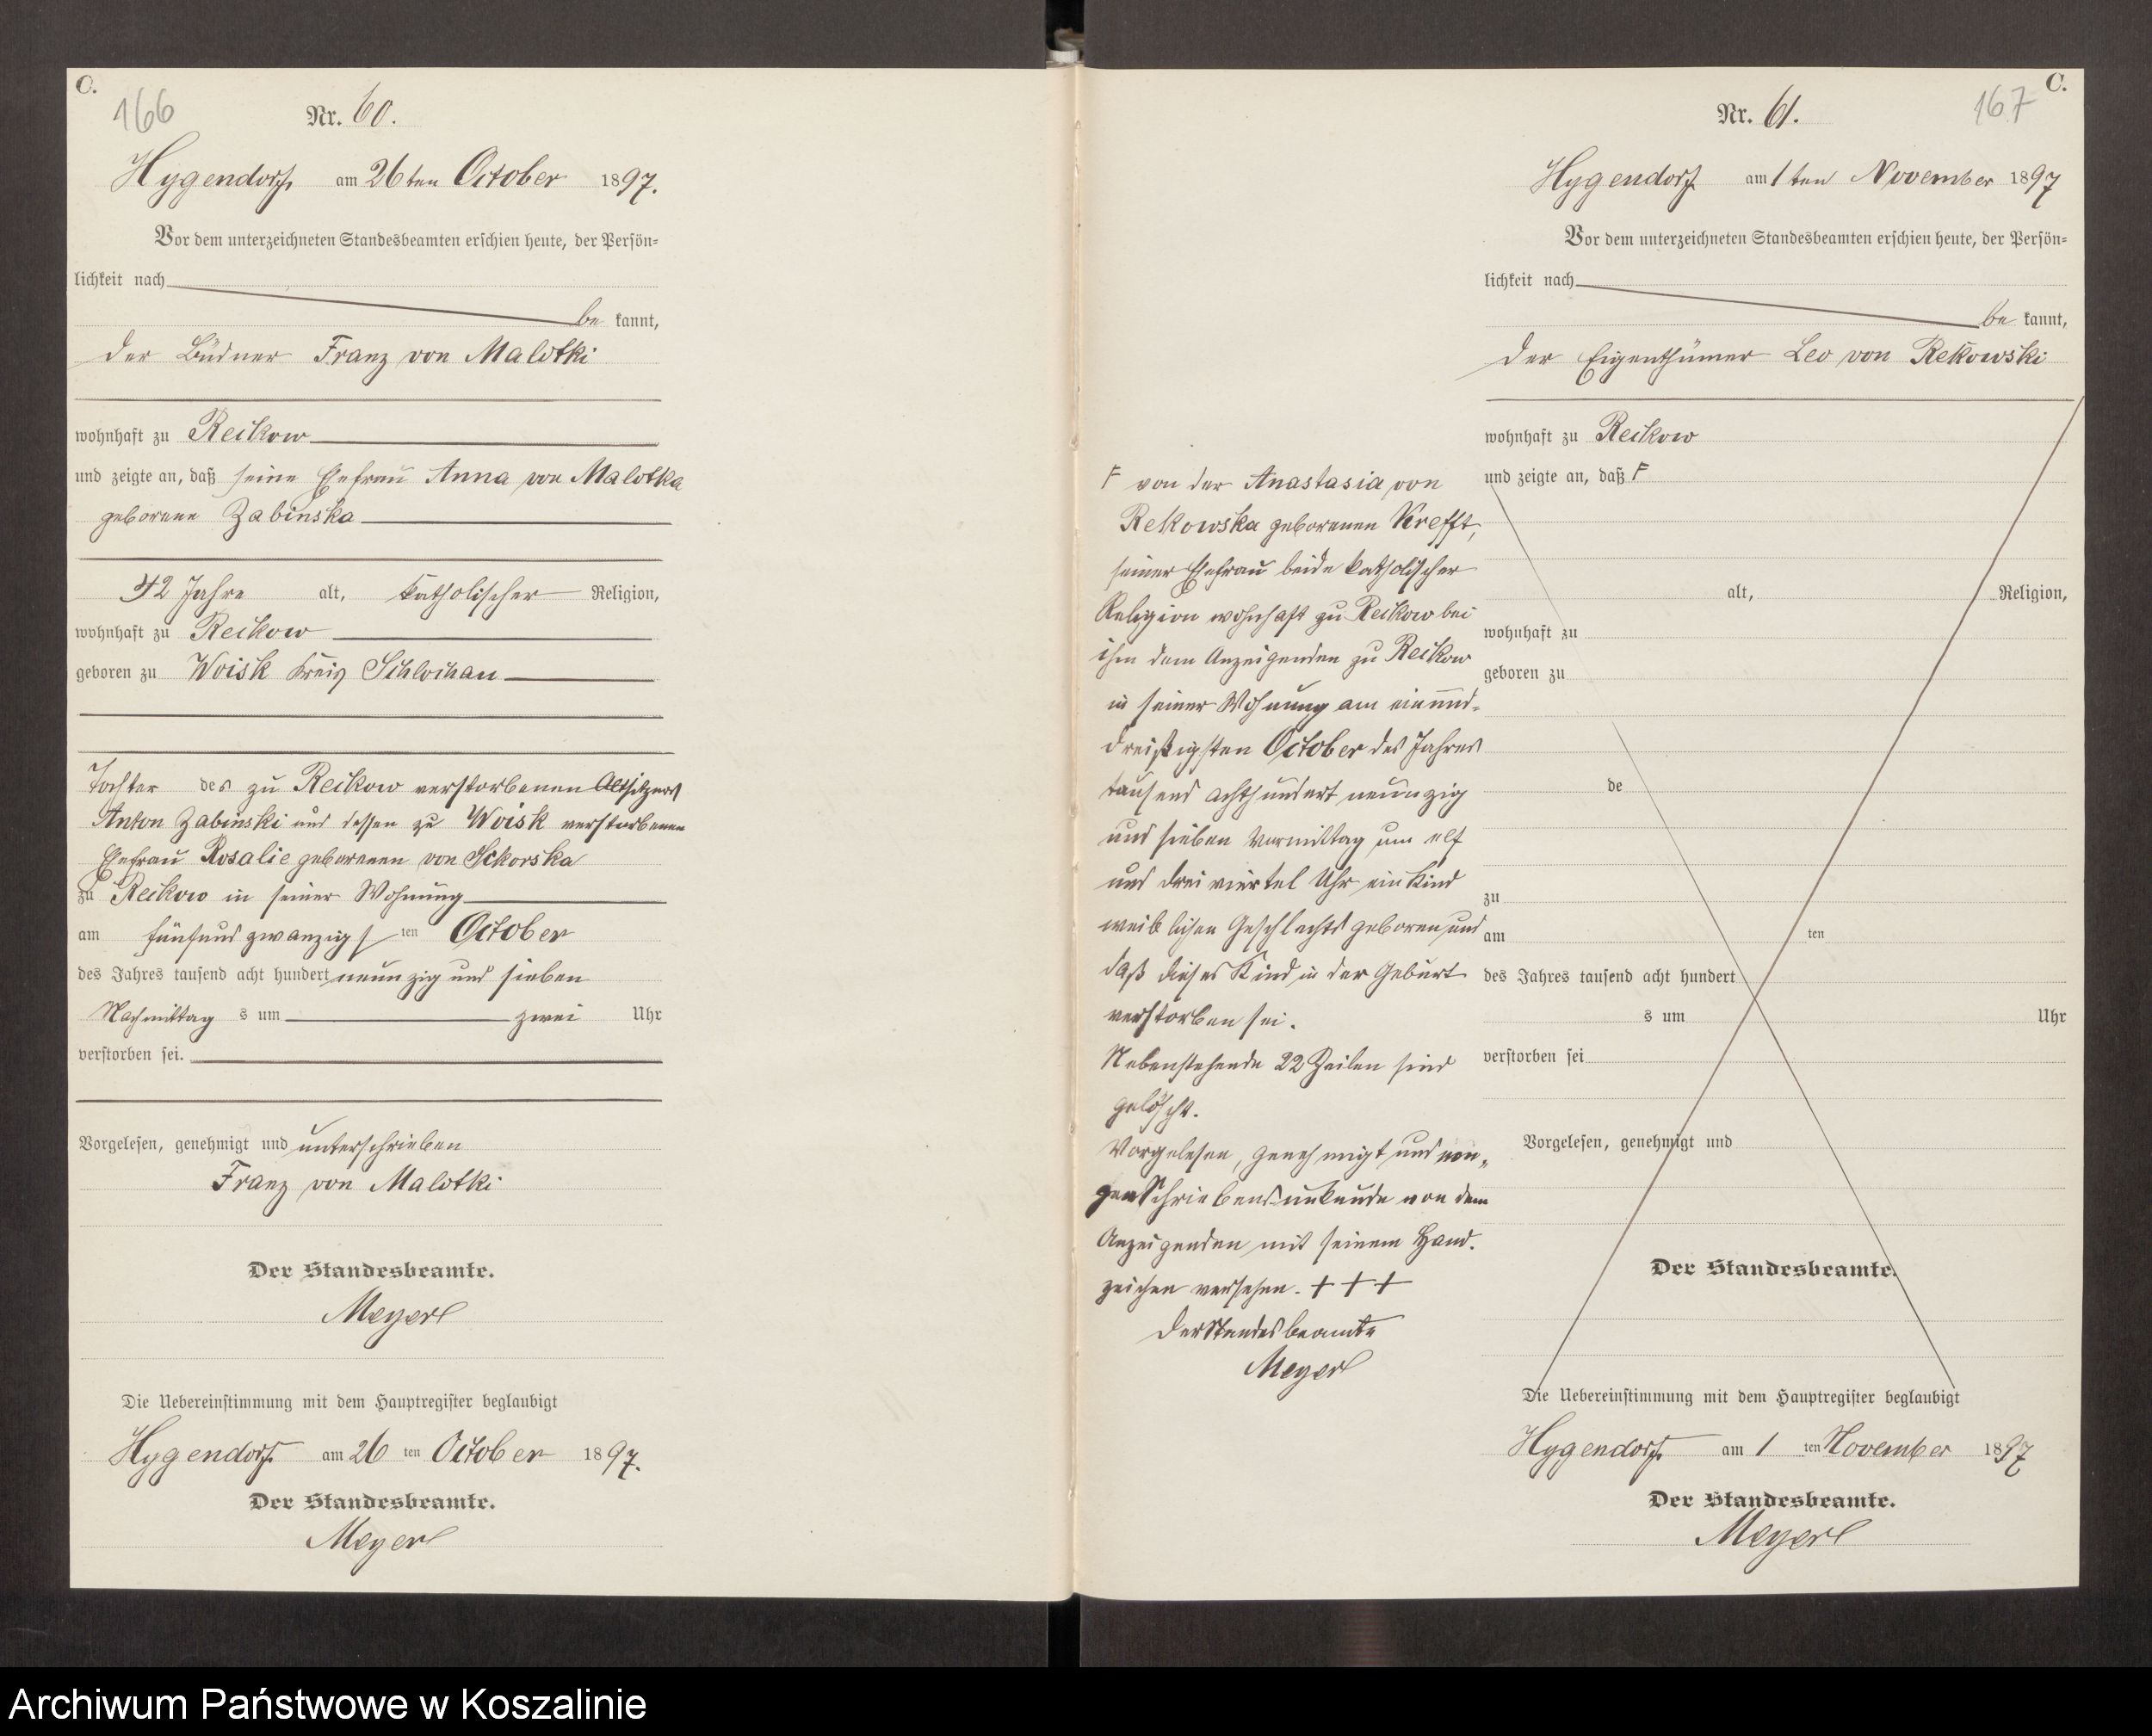 C.
166
Nr. 60.
Hygendorf am 26ten October 1897.
Vor dem unterzeichneten Standesbeamten erschien heute, der Persön=
lichkeit nach
be kannt,
der Büdner Franz von Malotki
wohnhaft zu Reckow
und zeigte an, daß seine Ehefrau Anna von Malotka
geborene Zabinska
42 Jahre alt, katholischer Religion,
wohnhaft zu Reckow
geboren zu Woisk Kreis Schlochau
Tochter des zu Reckow verstorbenen Altsitzers
Anton Zabinski und dessen zu Woisk verstorbenen
Ehefrau Rosalie geborenen von Sckorska
zu Reckow in seiner Wohnung
am fünfundzwanzigs ten October
des Jahres tausend acht hundert neunzig und sieben
Nachmittag s um zwei Uhr
verstorben sei.
Vorgelesen, genehmigt und unterschrieben
Franz von Malotki
Der Standesbeamte.
Meyer
Die Uebereinstimmung mit dem Hauptregister beglaubigt
Hygendorf am 26 ten October 1897.
Der Standesbeamte.
Meyer
C.
167
Nr. 61.
Hygendorf am 1 ten November 1897
Vor dem unterzeichneten Standesbeamten erschien heute, der Persön=
lichkeit nach
be kannt,
der Eigenthümer Leo von Rekowski
wohnhaft zu Reckow
und zeigte an, daß F
alt, Religion,
wohnhaft zu
geboren zu
de
zu
am ten
des Jahres tausend acht hundert
s um Uhr
verstorben sei
Vorgelesen, genehmigt und
Der Standesbeamte.
F von der Anastasia von
Rekowska geborenen Krefft,
seiner Ehefrau beide katholischer
Religion wohnhaft zu Reckow bei
ihm dem Anzeigenden zu Reckow
in seiner Wohnung am einund=
dreißigsten October des Jahres
tausend achthundert neunzig
und sieben Vormittag um elf
und drei viertel Uhr ein Kind
weiblichen Geschlechts geboren und
daß dieses Kind in der Geburt
verstorben sei.
Nebenstehende 22 Zeilen sind
gelöscht.
Vorgelesen, genehmigt und
von dem
Anzeigenden mit seinem Hand=
zeichen versehen. + + +
Der Standesbeamte
Meyer
Die Uebereinstimmung mit dem Hauptregister beglaubigt
Hygendorf am 1 ten November 1897
Der Standesbeamte.
Meyer
Archiwum Państwowe w Koszalinie